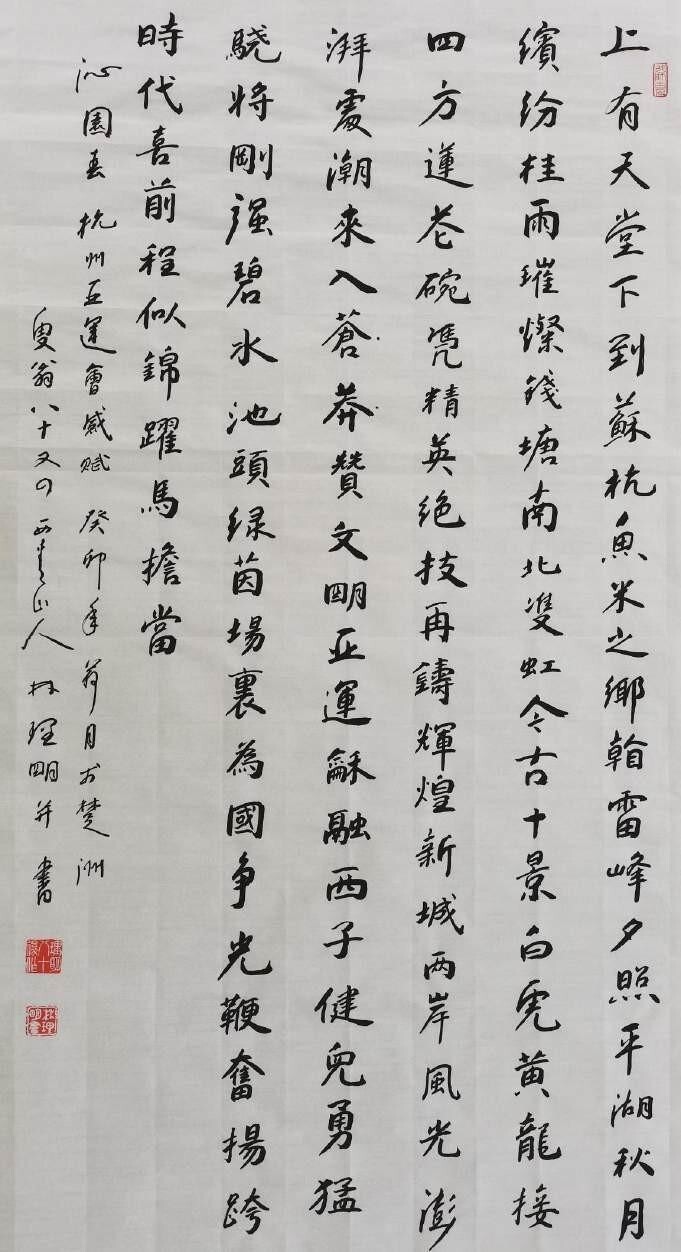 上有天堂下到蘇杭魚米之鄉翰雷峰夕照平湖秋月
繽紛桂雨璀燦錢塘南北雙虹今古十景白虎黄龍接
四方蓮花碗凭精英绝技再鑄輝煌新城两岸風光澎
湃處潮來入蒼莽贊文明亚運龢融西子健兒勇猛
驍將剛强碧水池頭绿茵場裏為國争光鞭奮揚跨
時代喜前程似錦躍馬擔當
沁園春 杭州亚運會感賦 癸卯年 月於楚洲
叟翁八十又 山人 林理明并書